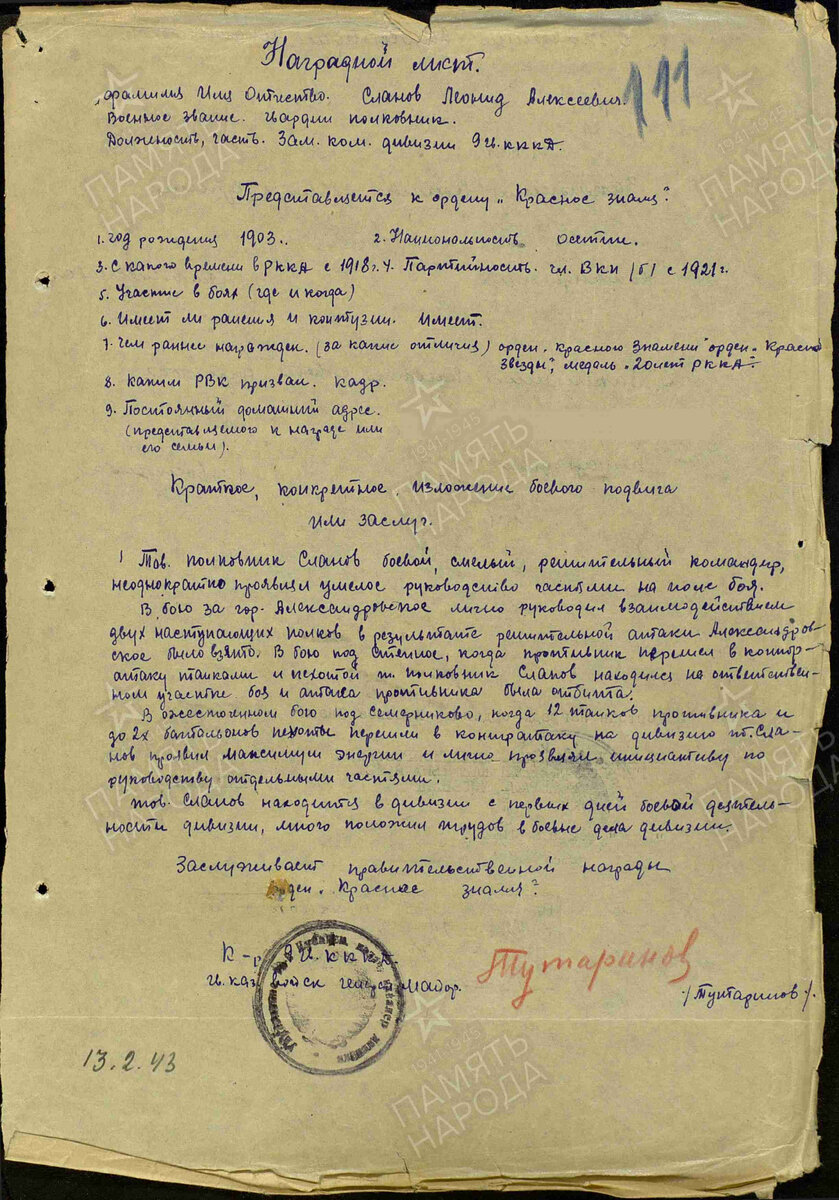 Наградной лист.
111
Фамилия Имя Отчество. Сланов Леонид Алексеевич.
Военное звание. гвардии полковник.
Должность, часть. Зам. ком. дивизии 9 гв. кккд.
Представляется к ордену „Красное знамя".
1. год рождения 1903.. 2. Национальность осетин.
3. С какого времени в РККА с 1918 г. 4. Партийность. чл. ВКП /б/ с 1921 г.
5. Участие в боях (где и когда)
6. Имеет ли ранения и контузии. Имеет.
7. Чем раннее награжден. (за какие отличия) орден „Красного Знамени" орден „Красной
Звезды", медаль „20 лет РККА".
8. каким РВК призван. кадр.
9. Постоянный домашний адрес.
(представляемого к награде или
его семьи).
Краткое, конкретное изложение боевого подвига
или заслуг.
Тов. полковник Сланов боевой, смелый, решительный командир,
неоднократно проявлял умелое руководство частями на поле боя.
В бою за гор. Александровское лично руководил взаимодействием
двух наступающих полков в результате решительной атаки Александров-
ское было взято. В бою под Степное, когда противник перешел в контр-
атаку танками и пехотой т. полковник Сланов находился на ответствен-
ном участке боя и атака противника была отбита.
В ожесточенном бою под Семерниково, когда 12 танков противника и
до 2х батальонов пехоты перешли в контратаку на дивизию т. Сла-
нов проявил максимум энергии и лично проявлял инициативу по
руководству отдельными частями.
тов. Сланов находится в дивизии с первых дней боевой деятель-
ности дивизии, много положил трудов в боевые дела дивизии.
Заслуживает правительственной награды
орден „Красное знамя".
К-р 9 гв. кккд.
гв. каз. войск генерал-майор.
Тутаринов
/Тутаринов/.
13.2.43
ПАМЯТЬ
НАРОДА
1941-1945
ПАМЯТЬ
НАРОДА
1941-1945
ПАМЯТЬ
НАРОДА
1941-1945
ПАМЯТЬ
НАРОДА